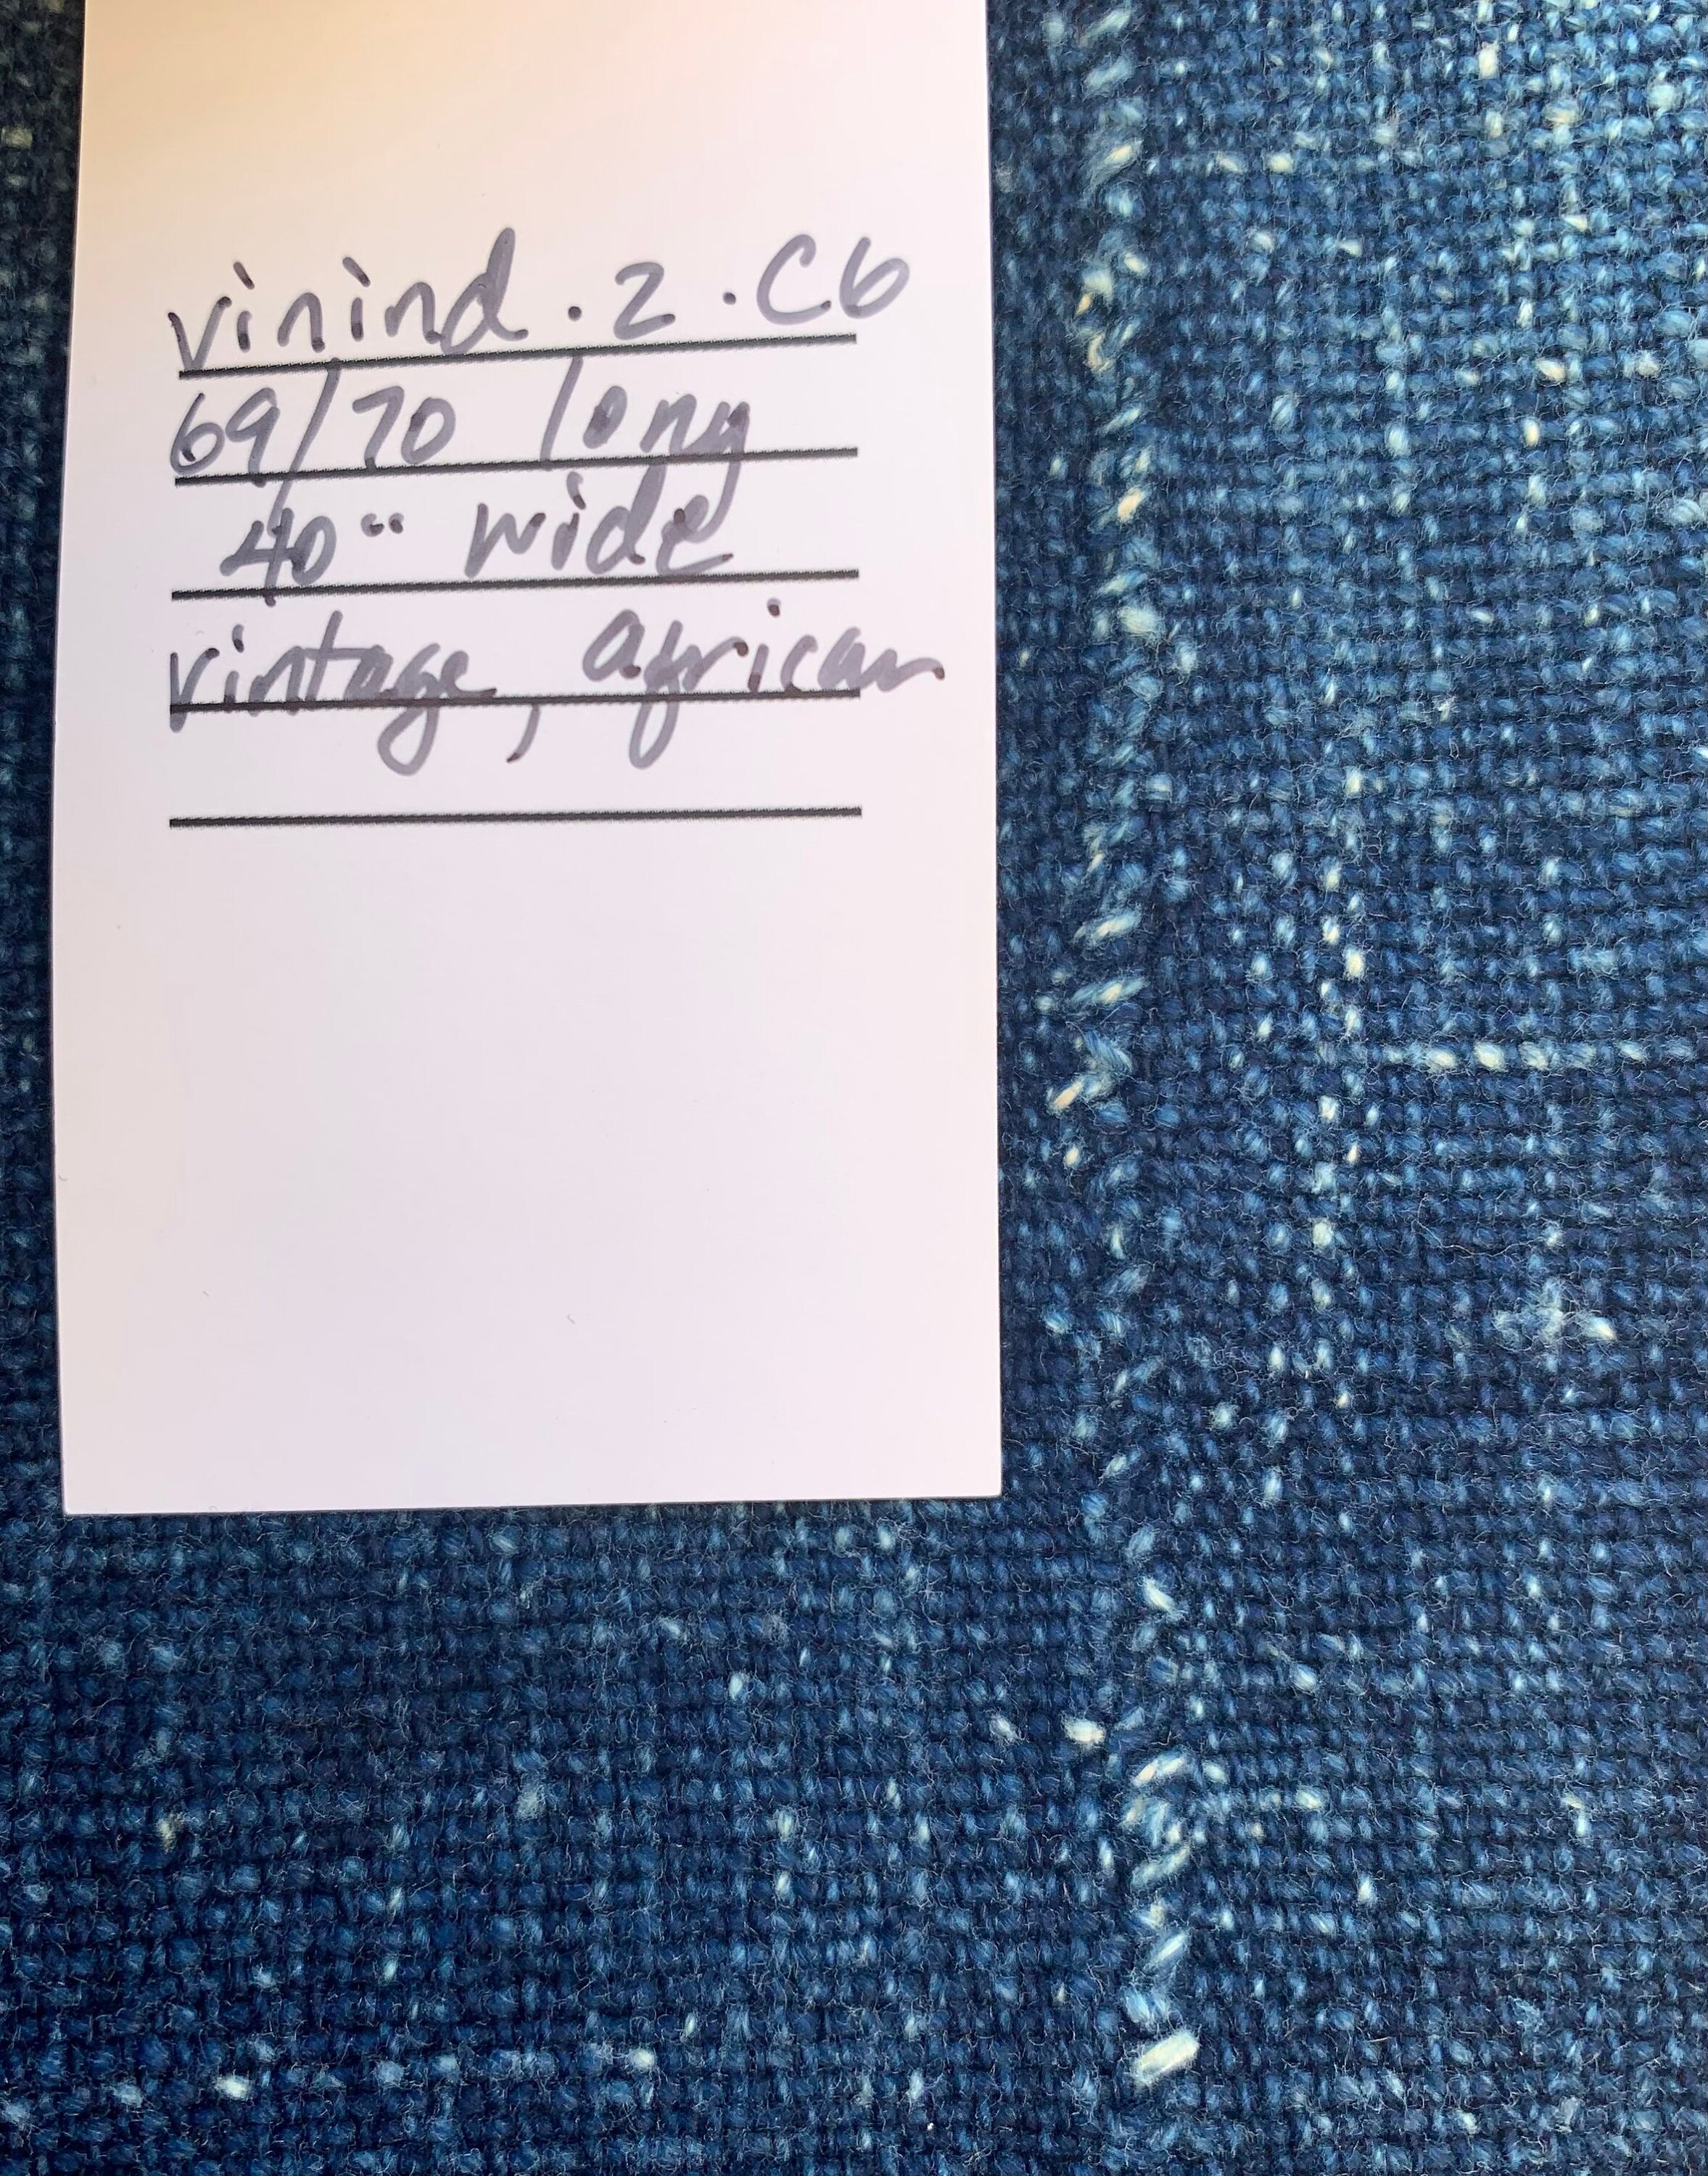 vinind.2.C6
69/70 long
40" wide
vintage, african